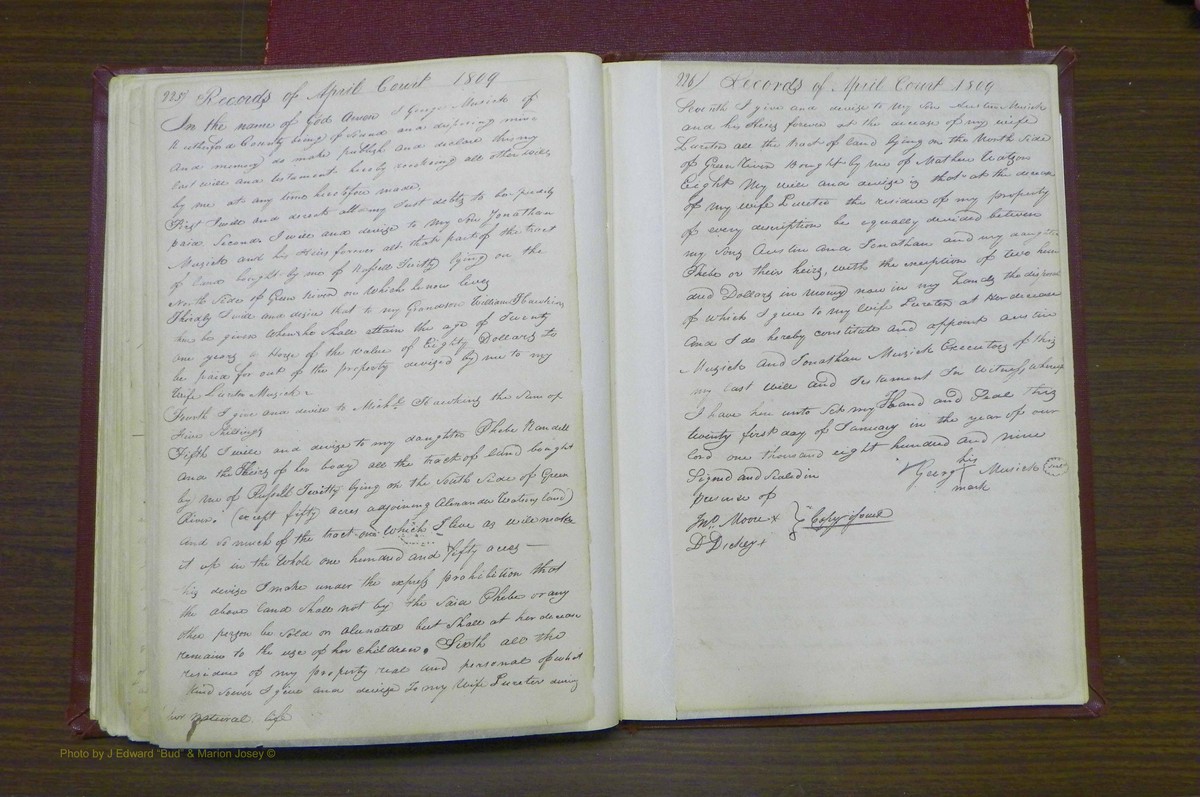 225) Records of April Court 1809
In the name of God Amen I George Musick of
Rutherford County being of Sound and disposing mind
and memory do make publish and declare this my
last will and testament hereby revoking all other wills
by me at any time heretofore made.
First I will and direct all my Just debts to be punctly
paid. Second I will and devise to my Son Jonathan
Musick and his Heirs forever all that part of the tract
of land bought by me of Russell Twitty lying on the
North Side of Green River on which he now lives
Thirdly I will and desire that to my Grandson William Hawkins
be given when he Shall attain the age of Twenty
one years a Horse of the value of Eighty Dollars to
be paid for out of the property devised by me to my
Wife Lucreta Musick
Fourth I give and devise to Michl. Hawkins the Sum of
five Shillings
Fifth I will and devise to my daughter Phebe Randell
and the Heirs of her body all the tract of land bought
by me of Russell Twitty lying on the South Side of Green
River. (except fifty acres adjoining Alexander Watsons land)
and so much of the tract on Which I live as will make
it up in the Whole one hundred and fifty acres —
this devise I make under the express prohibition that
the above land Shall not by the Said Phebe or any
other person be Sold or alienated but Shall at her decease
remain to the use of her Children. Sixth all the
residue of my property real and personal of what
kind Soever I give and devise to my Wife Lucreta during
her natural life
226) Records of April Court 1809
Seventh I give and devise to My Son Austin Musick
and his Heirs forever at the decease of my wife
Lucreta all the tract of land lying on the North Side
of Green River Bought by me of Mathew Watson
Eight My will and devise is that at the decease
of my wife Lucreta the residue of my property
of every description be equally devided between
my Sons Austin and Jonathan and my daughter
Phebe or their heirs, with the exception of two hun
dred Dollars in money now in my Hands the disposal
of which I give to my Wife Lucreta at Her decease
And I do hereby constitute and appoint Austin
Musick and Jonathan Musick Executors of this
my last will and Testament In Witness whereof
I have here unto Set my Hand and Seal this
twenty first day of January in the year of our
lord one thousand eight hundred and nine
Signed and Sealed in
presence of
his
George X Musick (seal)
mark
Jno. Moore x
D Dickey +
} Copy issued
Photo by J Edward "Bud" & Marion Josey ©